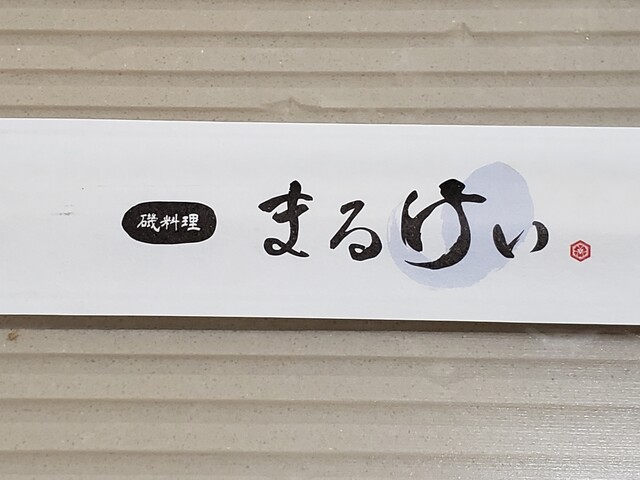 磯料理
まるけい